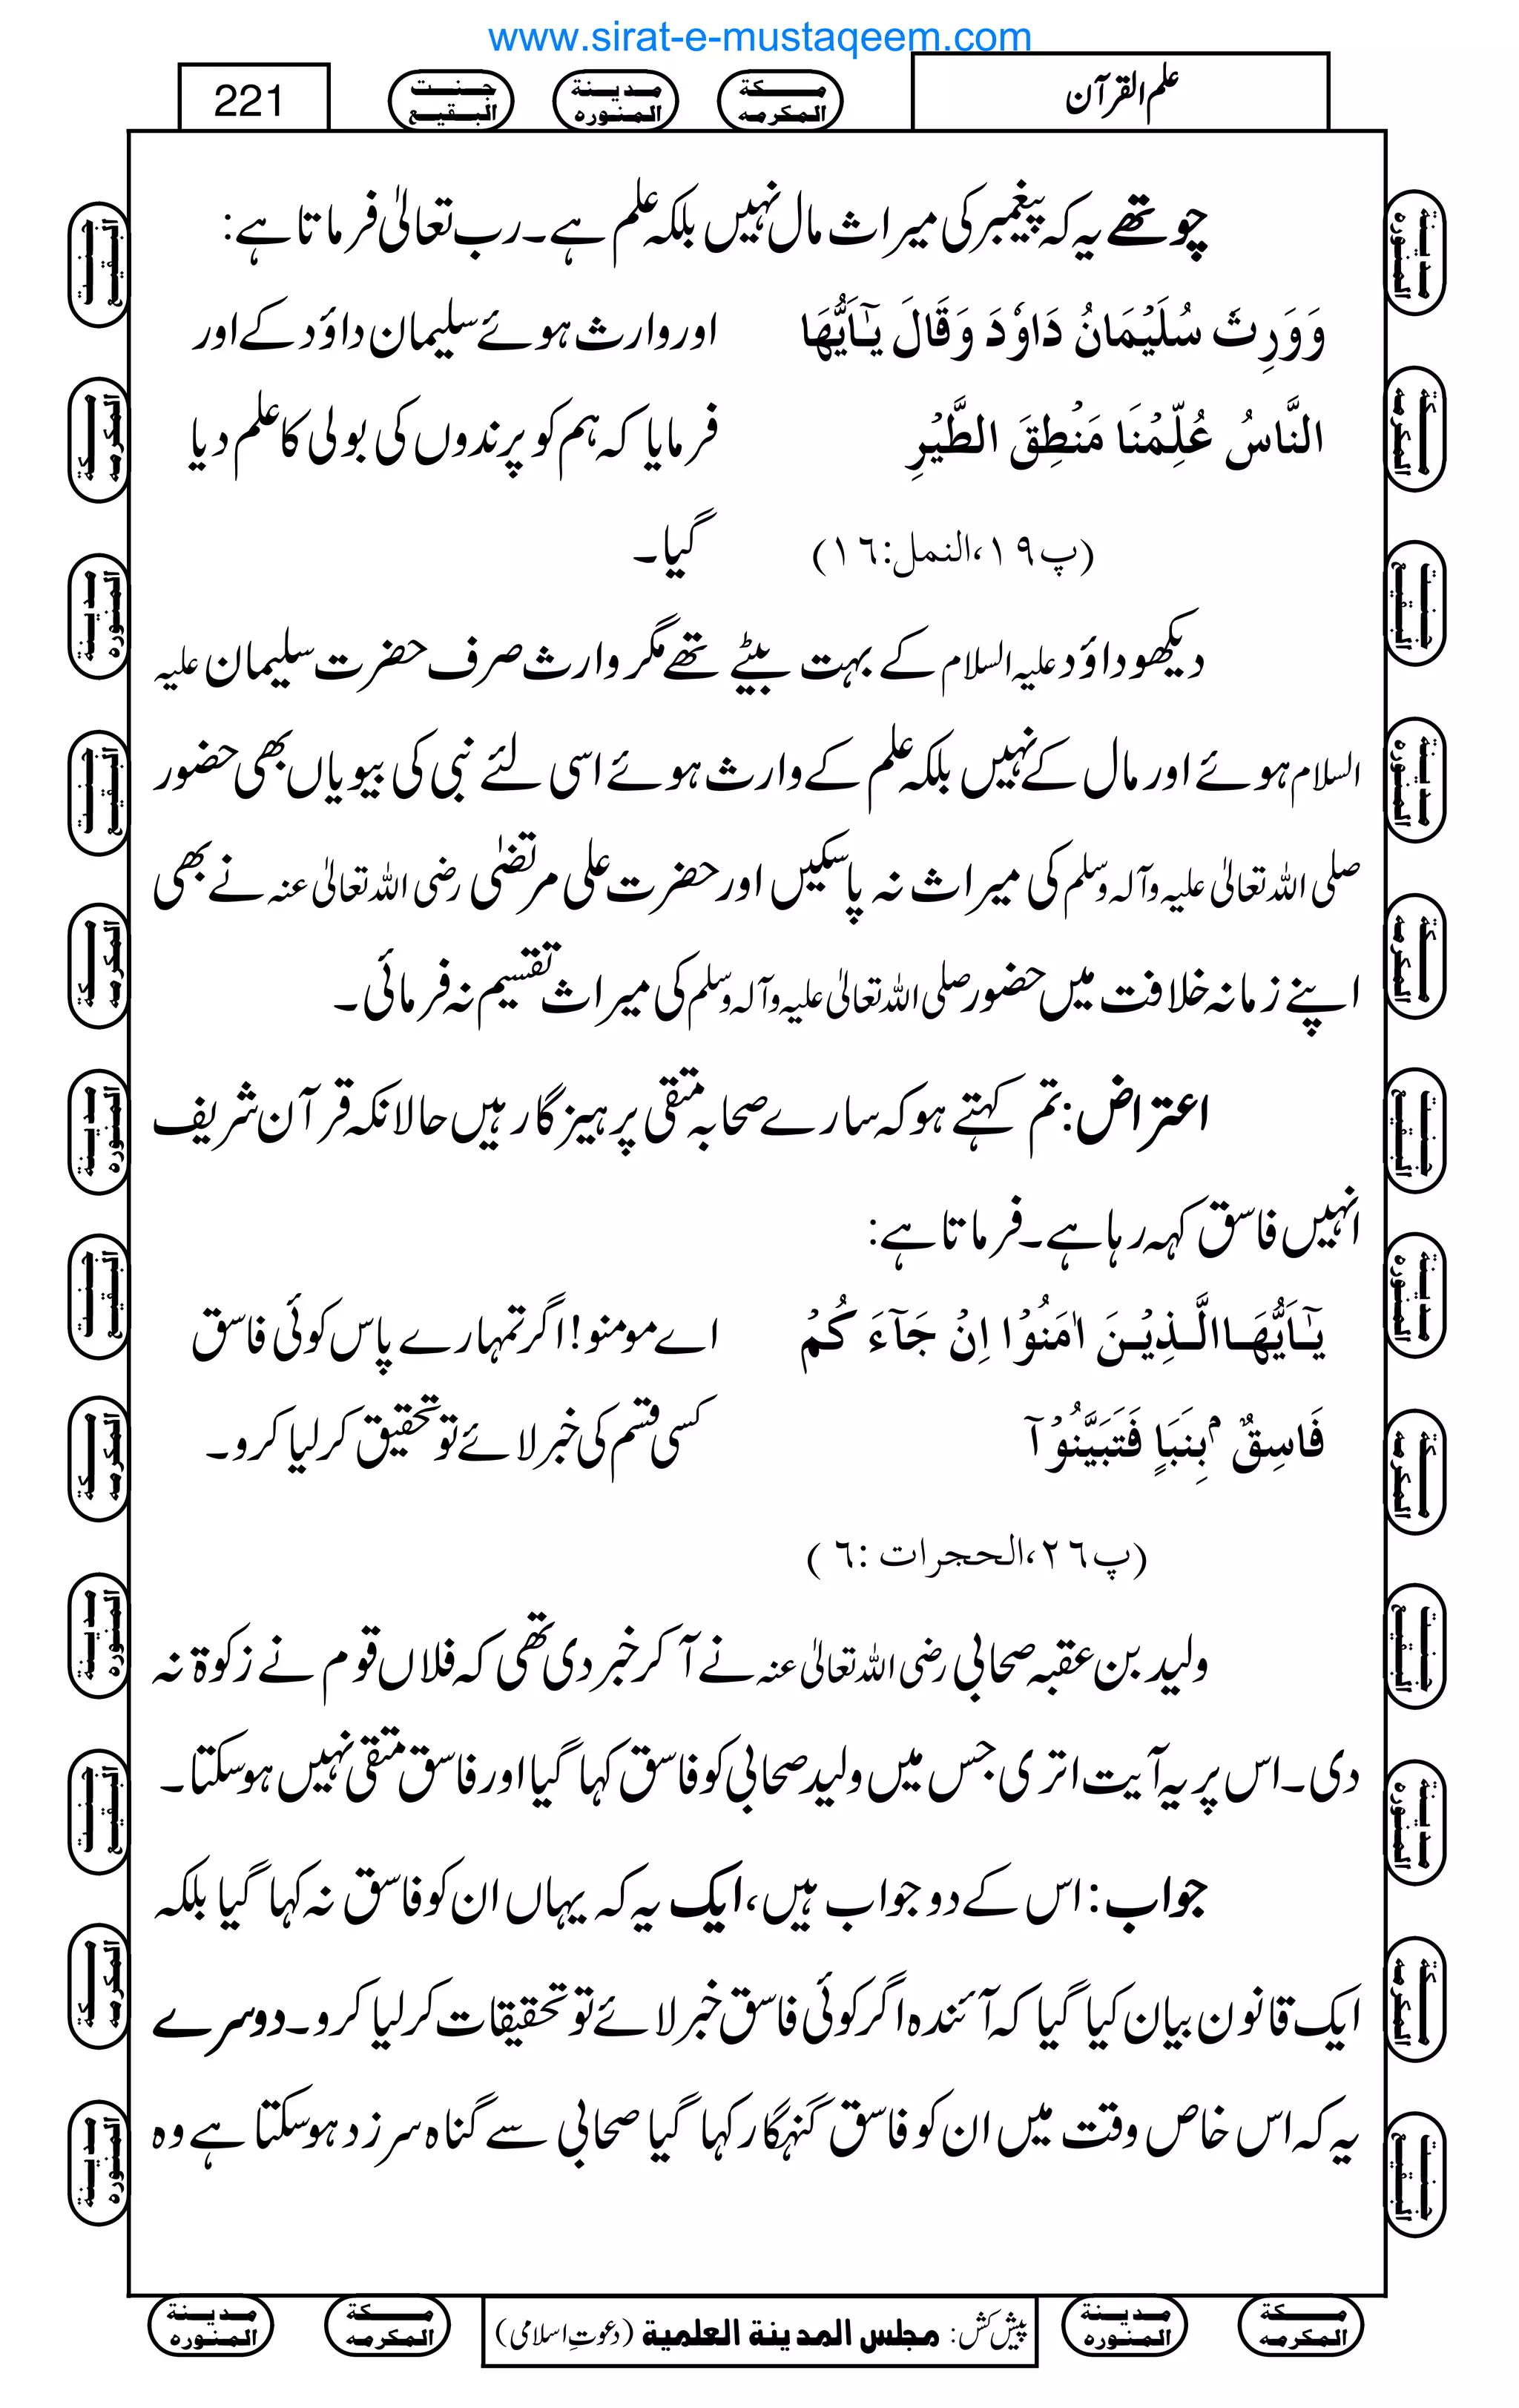 www.sirat-e-mustaqeem.com
علم القرآن
مكة المكرمه
مدينة المنوره
جنت البقيع
221
چوتھے یہ کہ پیغمبر کی میراث مال نہیں بلکہ علم ہے۔ رب تعالٰی فرماتا ہے:
وَوَرِثَ سُلَيْمَانُ دَاوٗدَ وَقَالَ يٰٓـاَيُّهَا اور وارث ہوئے سلیمان داؤد کے اور
النَّاسُ عُلِّمْنَا مَنْطِقَ الطَّيْرِ فرمایا کہ ہم کو پرندوں کی بولی کا علم دیا
(پ١٩،النمل:١٦) گیا۔
دیکھو داؤد علیہ السلام کے بہت بیٹے تھے مگر وارث صرف حضرت سلیمان علیہ
السلام ہوئے اور مال کے نہیں بلکہ علم کے وارث ہوئے اسی لئے نبی کی بیویاں بھی حضور
صلی اللہ تعالٰی علیہ وآلہ وسلم کی میراث نہ پاسکیں اور حضرت علی مرتضٰی رضی اللہ تعالٰی عنہ نے بھی
اپنے زمانہ خلافت میں حضور صلی اللہ تعالٰی علیہ وآلہ وسلم کی میراث تقسیم نہ فرمائی۔
اعتراض: تم کہتے ہو کہ سارے صحابہ متقی پرہیزگار ہیں حالانکہ قرآن شریف
انہیں فاسق کہہ رہا ہے۔ فرماتا ہے:
يٰٓـاَيُّهَا الَّذِيْنَ اٰمَنُوْا اِنْ جَآءَ كُمْ اے مومنو! اگر تمہارے پاس کوئی فاسق
فَاسِقٌ ۢ بِنَبَاٍ فَتَبَيَّنُوْآ کسی قسم کی خبر لائے تو تحقیق کر لیا کرو۔
(پ٢٦،الحجرات :٦)
ولید بن عقبہ صحابی رضی اللہ تعالٰی عنہ نے آ کر خبر دی تھی کہ فلاں قوم نے زکوۃ نہ
دی۔ اس پر یہ آیت اتری جس میں ولید صحابی کو فاسق کہا گیا اور فاسق متقی نہیں ہوسکتا۔
جواب: اس کے دو جواب ہیں، ایک یہ کہ یہاں ان کو فاسق نہ کہا گیا بلکہ
ایک قانون بیان کیا گیا کہ آئندہ اگر کوئی فاسق خبر لائے تو تحقیقات کر لیا کرو۔ دوسرے
یہ کہ اس خاص وقت میں ان کو فاسق گنہگار کہا گیا صحابی سے گناہ سرزد ہوسکتا ہے وہ
پیش کش: مجلس المدينة العلمية (دعوتِ اسلامی)